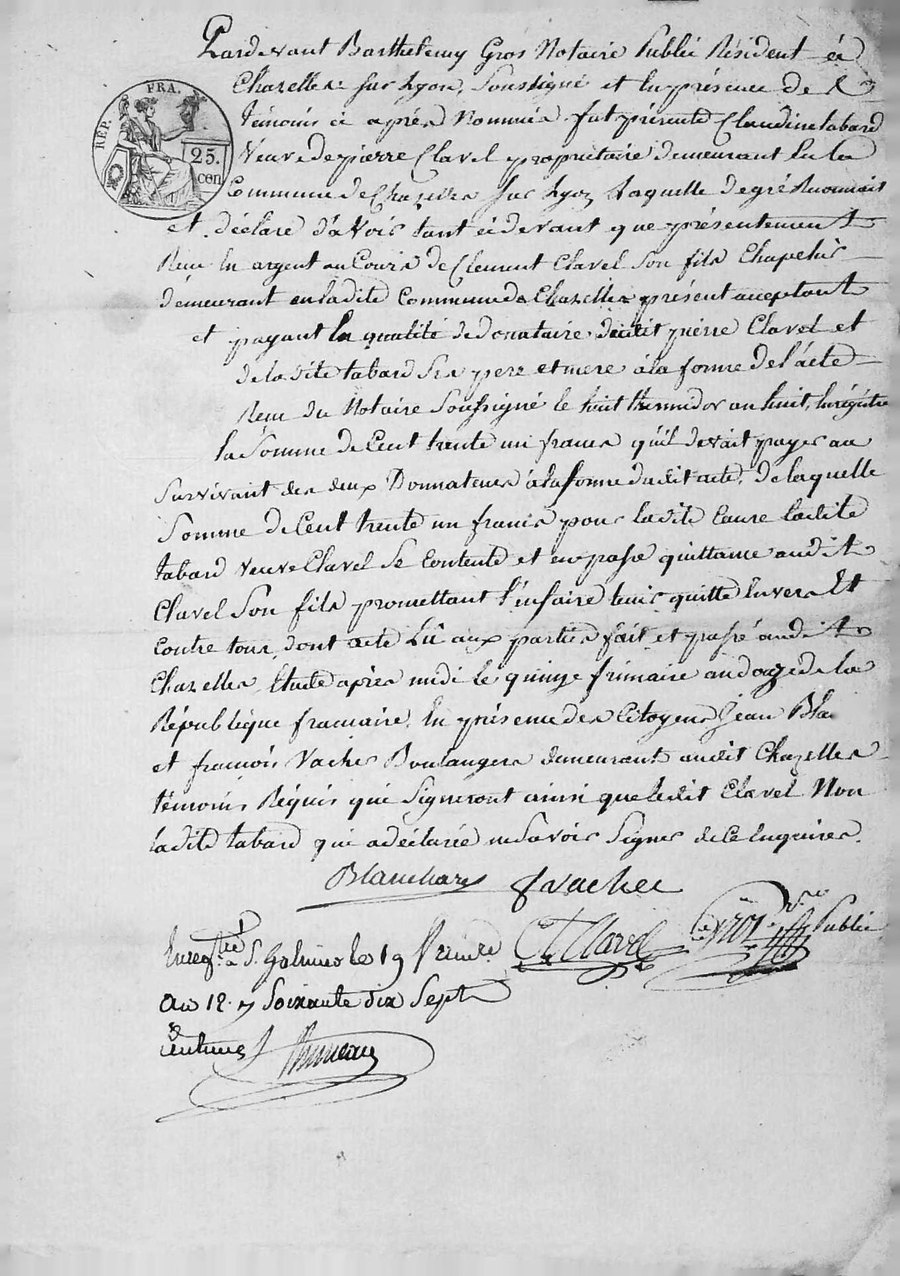 Pardevant Barthelemy Gros Notaire Public Résident à
Chazelles sur Lyon, Soussigné et En présence de
témoins ci après Nommés fut présente Claudine tabard
Veuve de pierre Clavel propriétaire demeurant En la
Commune de Chazelles sur Lyon laquelle de gré Reconnait
et déclare d'avoir tant ci devant que présentement
Recu En argent au Cours de Clement Clavel Son fils Chapelier
demeurant en ladite Commune de Chazelles présent acceptant
et payant En qualité de donataire dudit pierre Clavel et
de la dite tabard Ses pere et mere à la forme de l'acte
Recu du Notaire Soussigné le huit thermidor an huit, Enrégistré
la Somme de Cent trente un francs qu'il devait payer au
Survivant des deux Donnateurs à la forme dudit acte, de laquelle
Somme de Cent trente un francs pour ladite Cause ladite
tabard veuve Clavel Se Contente et en passe quittance audit
Clavel Son fils promettant l'en faire tenir quitte Envers Et
Contre tous, dont acte Lû aux parties fait et passé audit
Chazelles Etude après midi le quinze frimaire an douze de la
République francaise. En présence des Citoyens Jean Bla
et francois Vacher Boulangers demeurants audit Chazelles
témoins Réquis qui Signeront ainsi que ledit Clavel Non
ladite tabard qui a déclarée ne Savoir Signer de Ce Enquise.
Blanchard fvacher
RÉP. FRA.
25.
cen
Cl Clavel Gros Public
Enreg.tré à S.t Galmier le 19
An 12. Soixante dix Sept
Centimes